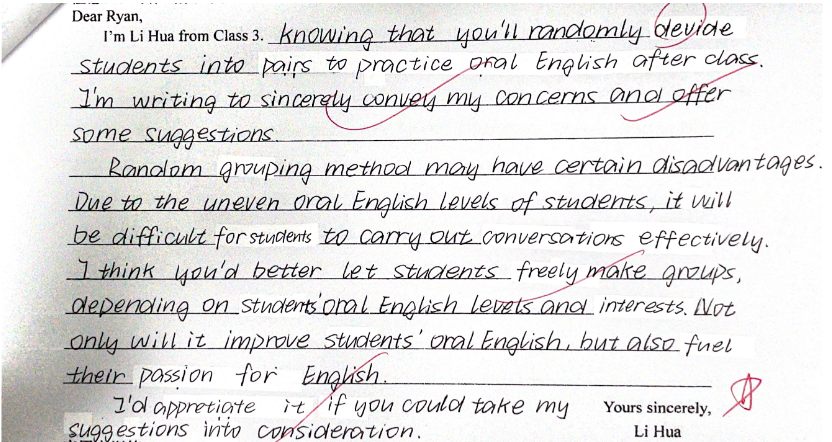 Dear Ryan,
I'm Li Hua from Class 3. knowing that you'll randomly devide
students into pairs to practice oral English after class.
I'm writing to sincerely convey my concerns and offer
some suggestions.
Random grouping method may have certain disadvantages.
Due to the uneven oral English levels of students, it will
be difficult for students to carry out conversations effectively.
I think you'd better let students freely make groups,
depending on students' oral English levels and interests. Not
only will it improve students' oral English, but also fuel
their passion for English.
I'd appretiate it if you could take my Yours sincerely,
suggestions into consideration. Li Hua